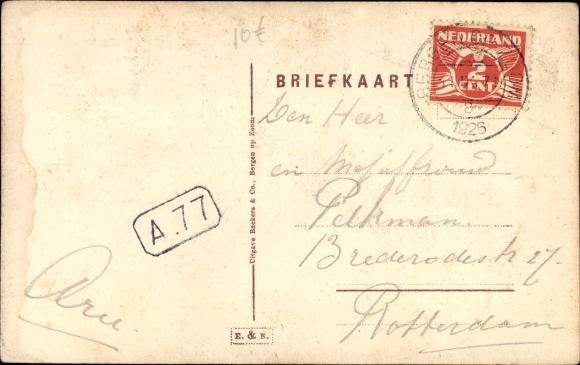 10€
NEDERLAND
2
CENT
BER
8
1926
BRIEFKAART
Den Heer
en Mejuffrouw
Pelkman.
Brederodestr 27.
Rotterdam
A.77
Arie.
Uitgave Backers & Co., Bergen op Zoom
E. & B.